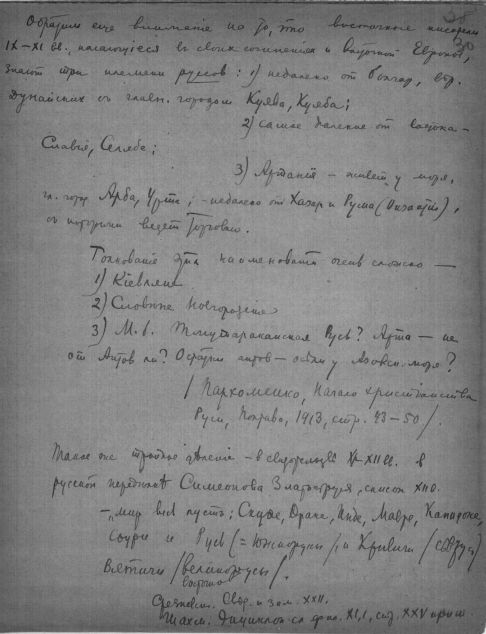 35
30
Обратим еще внимание на то, что восточные писатели
IX–XI вв., касающиеся в своих сочинениях и восточной Европы,
знают три племени руссов: 1) недалеко от Болгар,
Дунайских с главн. городом Куява, Куяба;
2) самое далекое от востока –
Славiя, Селябе;
3) Артанiя – живет у моря,
гл. город Арба, Урта, – недалеко от Хазар и Рума (Византии),
с которыми ведет торговлю.
Толкование этих наименований очень сложно —
1) Кiевляне
2) Словѣне Новгородские
3) М. б. Тмутараканская Русь? Арта – не
от Антов ли? Остатки антов – осели у Азовск. моря?
/ Пархоменко, Начало христианства
Руси, Полтава, 1913, стр. 43–50 /.
Такое же тройное дѣление – в XII в. в
русской Симеонова Златоструя, список XII в.
– мир весь пусть: Скуфе, Фраке, Инде, Мавре, Кападоке,
и Русь (= Южнорусы/, и Кривичи /
Вятичи /великорусы/.
восточно
Срезневск. Свѣд. и зам. XXII.
Шахм. XI, 1, стр. XXV прим.